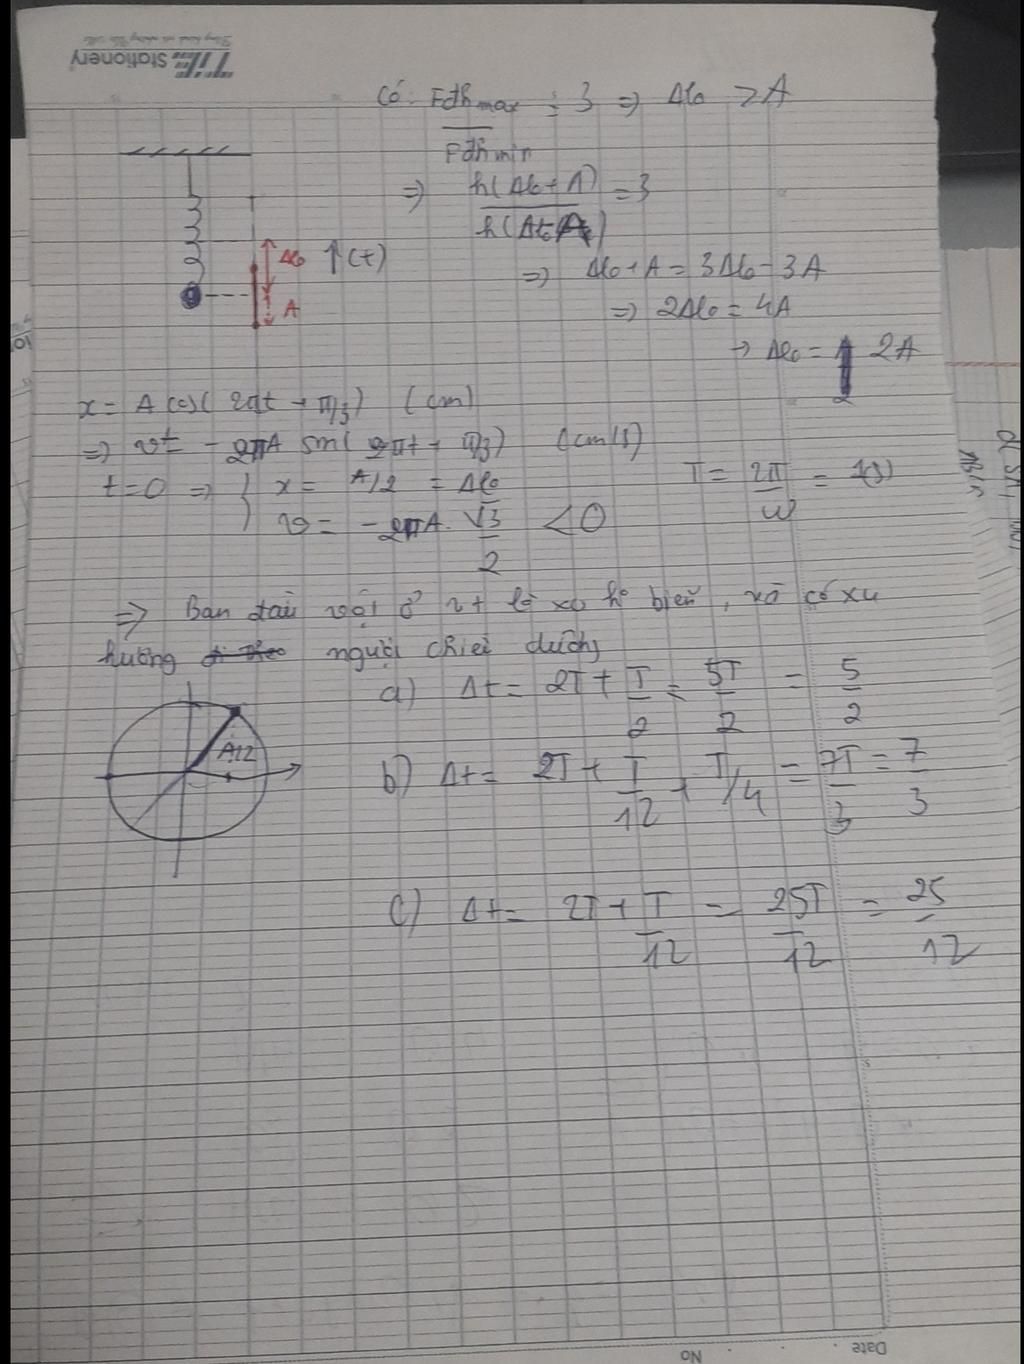 TIE Stationery
Có: Fđh max / Fđh min = 3 => Δl₀ > A
=> k(Δl₀ + A) / k(Δl₀ - A) = 3
Δl₀ ↑(+)
A
=> Δl₀ + A = 3Δl₀ - 3A
=> 2Δl₀ = 4A
-> Δl₀ = 2A
x = A cos(2πt + π/3) (cm)
=> v = -2πA sin(2πt + π/3) (cm/s)
t = 0 => { x = A/2 = Δl₀
v = -2πA . √3/2 < 0
T = 2π/ω = 1(s)
=> Ban đầu vật ở vt lò xo k biến, và có xu
hướng người chiều dương
A/2
a) Δt = 2T + T/2 = 5T/2 = 5/2
b) Δt = 2T + T/12 + T/4 = 7T/3 = 7/3
c) Δt = 2T + T/12 = 25T/12 = 25/12
Date No